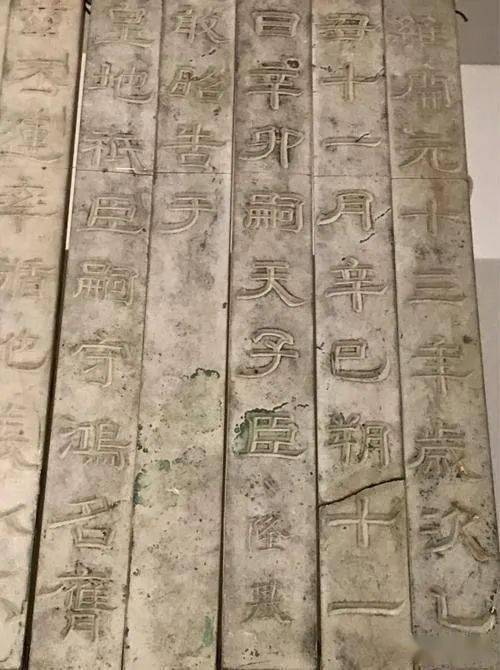 維開元十三年歲次乙
丑十一月辛巳朔十一
日辛卯嗣天子臣隆基
敢昭告于
皇地祇臣嗣守鴻名膺
茲丕運率循地義以